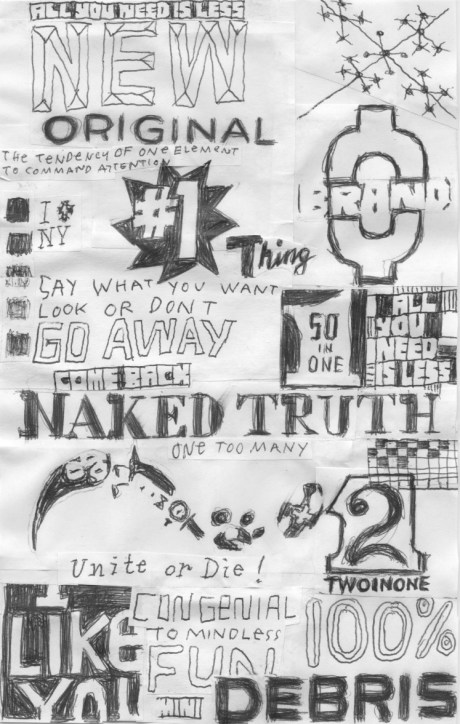 ALL YOU NEED IS LESS
NEW
ORIGINAL
THE TENDENCY OF ONE ELEMENT
TO COMMAND ATTENTION
#1
Thing
BRAND
I
NY
SAY WHAT YOU WANT
LOOK OR DON'T
GO AWAY
50
IN
ONE
ALL
YOU
NEED
IS LESS
COME BACK
NAKED TRUTH
ONE TOO MANY
Unite or Die!
2
TWOINONE
I
LIKE
YOU
CONGENIAL
TO MINDLESS
FUN
MINI
100%
DEBRIS